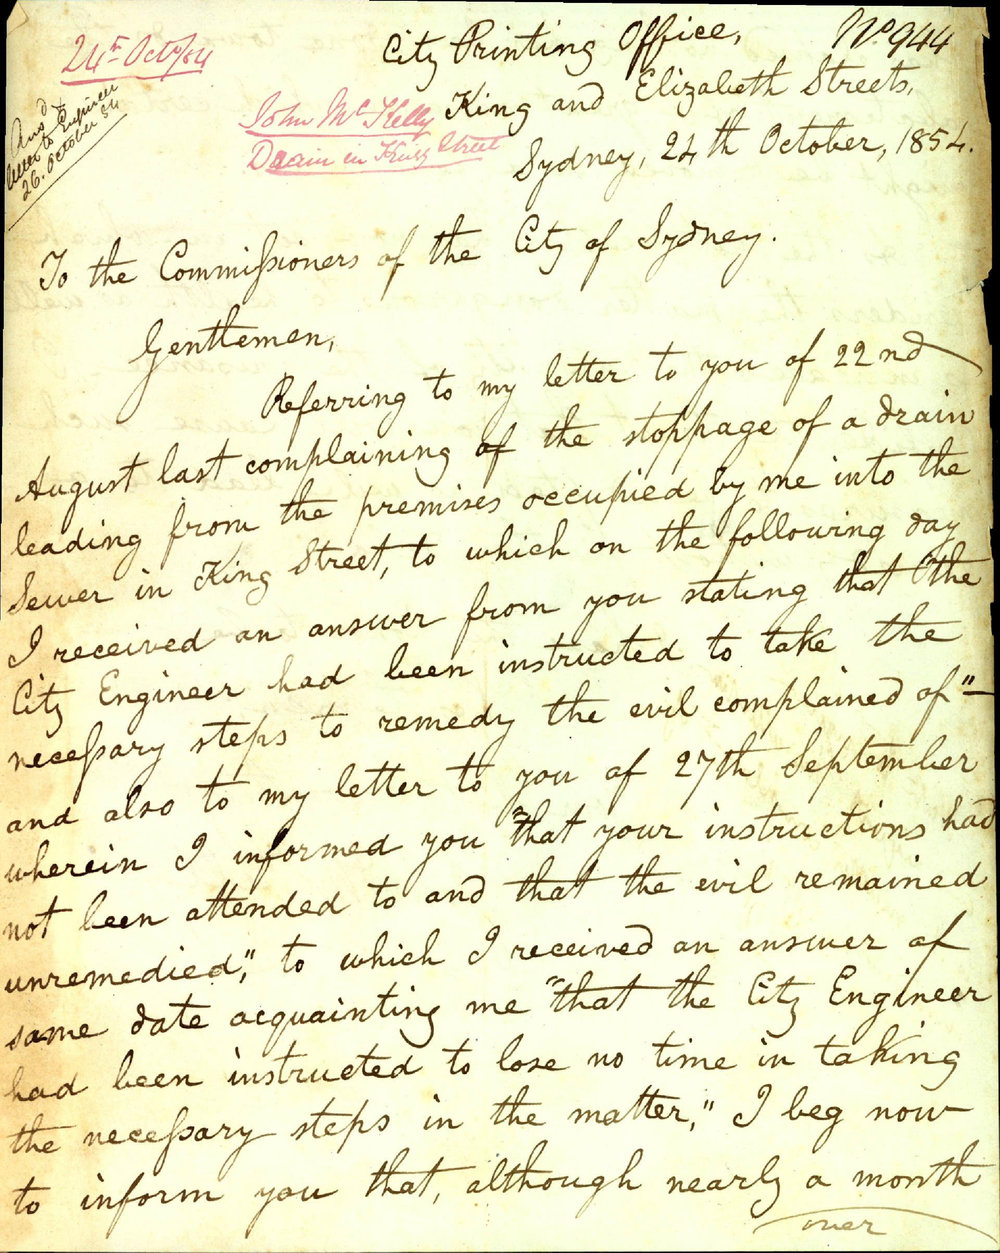 24th Oct/54
City Printing Office,
No 944
Ansd &
letter to Engineer
26. October 54
John McKelly
Drain in King Street
King and Elizabeth Streets,
Sydney, 24th October, 1854.
To the Commissioners of the City of Sydney.
Gentlemen,
Referring to my letter to you of 22nd
August last complaining of the stoppage of a drain
leading from the premises occupied by me into the
Sewer in King Street, to which on the following day
I received an answer from you stating that "the
City Engineer had been instructed to take the
necessary steps to remedy the evil complained of" —
and also to my letter to you of 27th September
wherein I informed you "that your instructions had
not been attended to and that the evil remained
unremedied," to which I received an answer of
same date acquainting me "that the City Engineer
had been instructed to lose no time in taking
the necessary steps in the matter," I beg now
to inform you that, although nearly a month
over